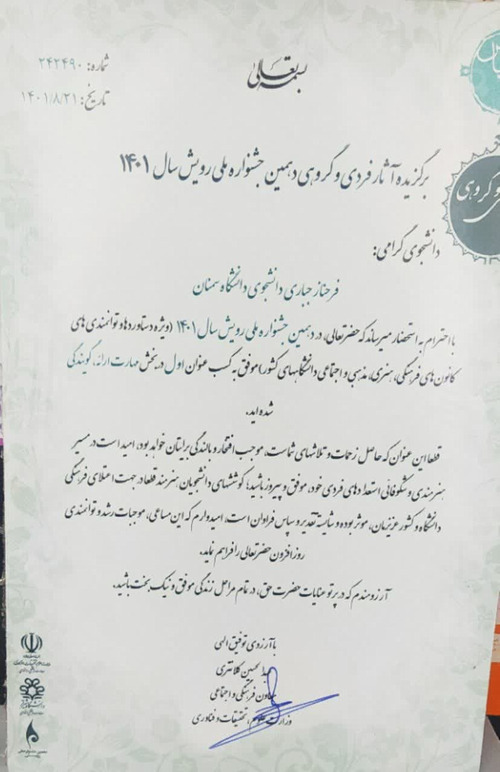 بسمه تعالی
شماره: ۲۴۲۴۹۰
تاریخ: ۱۴۰۱/۸/۲۱
برگزیده آثار فردی و گروهی دهمین جشنواره ملی رویش سال ۱۴۰۱
دانشجوی گرامی:
فرحناز جباری دانشجوی دانشگاه سمنان
با احترام به استحضار می‌رساند که حضرتعالی، در دهمین جشنواره ملی رویش سال ۱۴۰۱ (ویژه دستاوردها و توانمندی های
کانون های فرهنگی، هنری، مذهبی و اجتماعی دانشگاههای کشور) موفق به کسب عنوان اول در بخش مهارت ارائه، گویندگی
شده اید.
قطعا این عنوان که حاصل زحمات و تلاشهای شماست، موجب افتخار و بالندگی برایتان خواهد بود، امید است در مسیر
هنرمندی و شکوفائی استعدادهای فردی خود، موفق و پیروز باشید، کوششهای دانشجویان هنرمند قطعا در جهت اعتلای فرهنگی
دانشگاه و کشور عزیزمان، موثر بوده و شایسته تقدیر و سپاس فراوان است، امیدوارم که این مساعی، موجبات رشد و توانمندی
روز افزون حضرتعالی را فراهم نماید.
آرزومندم که در پرتو عنایات حضرت حق، در تمام مراحل زندگی موفق و نیک بخت باشید.
با آرزوی توفیق الهی
عبدالحسین کلانتری
معاون فرهنگی و اجتماعی
وزارت علوم، تحقیقات و فناوری